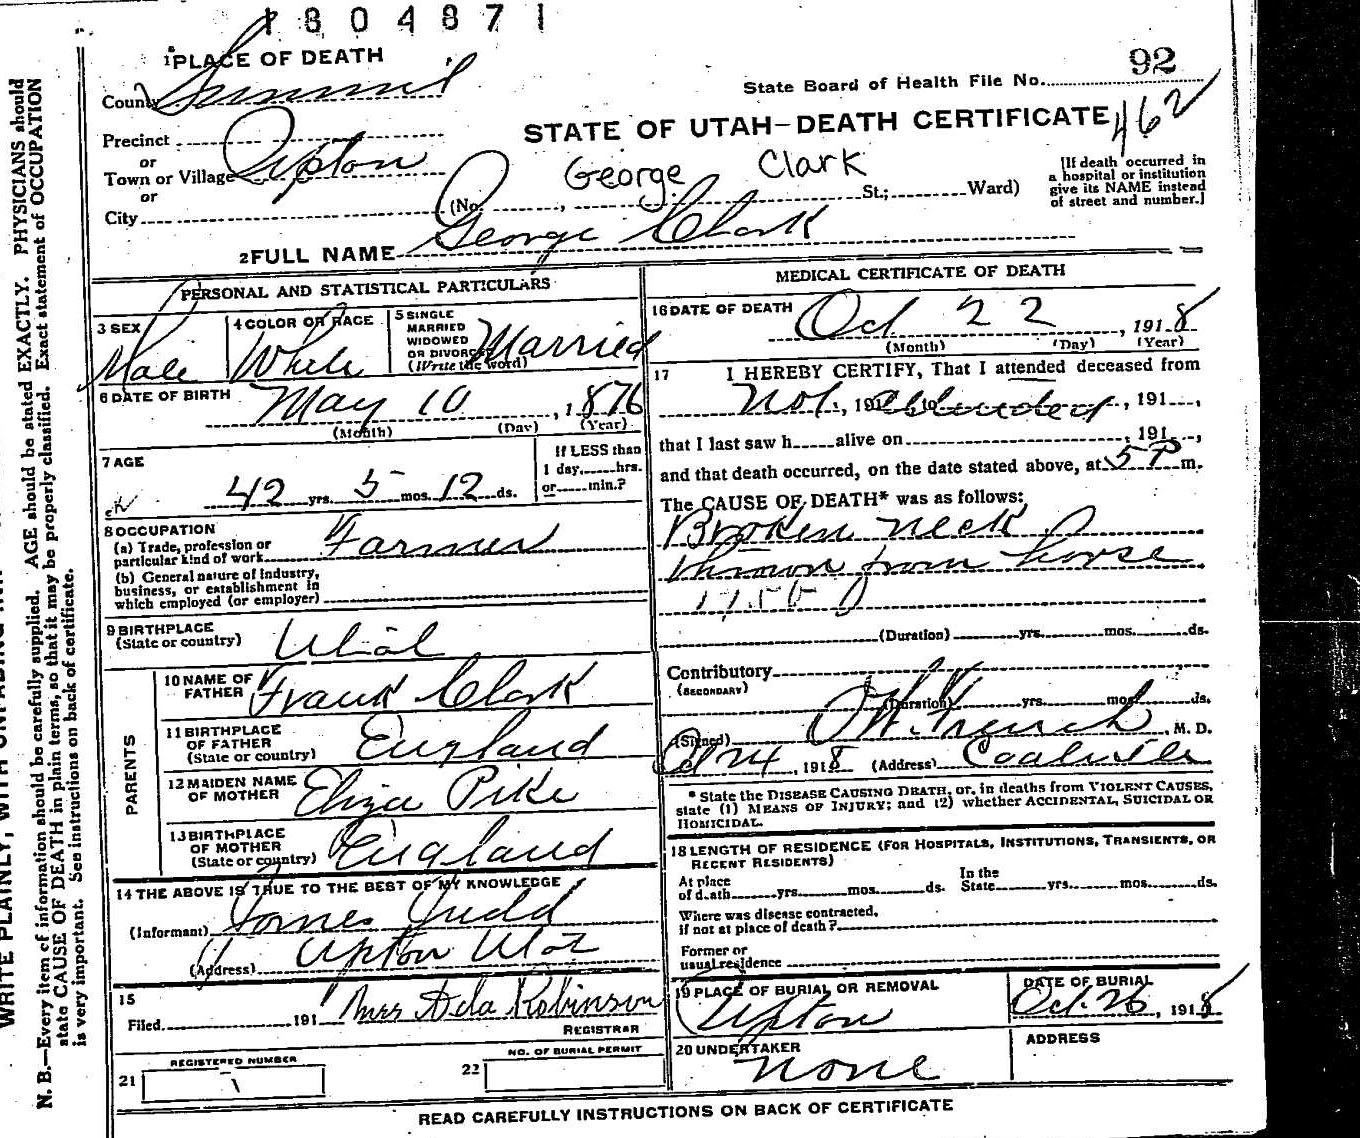 1804871
1PLACE OF DEATH
County Summit
State Board of Health File No. 92
462
STATE OF UTAH—DEATH CERTIFICATE
Precinct
or
Town or Village Upton
or
City
George Clark
(No. , St.; Ward)
[If death occurred in
a hospital or institution
give its NAME instead
of street and number.]
2FULL NAME George Clark
PERSONAL AND STATISTICAL PARTICULARS
3 SEX
Male
4 COLOR OR RACE
White
5 SINGLE
MARRIED
WIDOWED
OR DIVORCED
(Write the word)
Married
6 DATE OF BIRTH
May 10, 1876
(Month) (Day) (Year)
7 AGE
42 yrs. 5 mos. 12 ds.
If LESS than
1 day, hrs.
or min.?
8 OCCUPATION
(a) Trade, profession or
particular kind of work Farmer
(b) General nature of industry,
business, or establishment in
which employed (or employer)
9 BIRTHPLACE
(State or country) Utah
PARENTS
10 NAME OF
FATHER Frank Clark
11 BIRTHPLACE
OF FATHER
(State or country) England
12 MAIDEN NAME
OF MOTHER Eliza Pike
13 BIRTHPLACE
OF MOTHER
(State or country) England
14 THE ABOVE IS TRUE TO THE BEST OF MY KNOWLEDGE
(Informant) James Judd
(Address) Upton Utah
15
Filed 191 Mrs Ada Robinson
REGISTRAR
REGISTERED NUMBER
21
NO. OF BURIAL PERMIT
22
MEDICAL CERTIFICATE OF DEATH
16 DATE OF DEATH
Oct 22, 1918
(Month) (Day) (Year)
17 I HEREBY CERTIFY, That I attended deceased from
Not, 191 to attended, 191,
that I last saw h alive on , 191,
and that death occurred, on the date stated above, at 5 P m.
The CAUSE OF DEATH* was as follows:
Broken neck
thrown from horse
(Duration) yrs. mos. ds.
Contributory
(SECONDARY)
(Duration) yrs. mos. ds.
(Signed) French, M. D.
Oct 24, 1918 (Address) Coalville
* State the DISEASE CAUSING DEATH, or, in deaths from VIOLENT CAUSES,
state (1) MEANS OF INJURY; and (2) whether ACCIDENTAL, SUICIDAL OR
HOMICIDAL.
18 LENGTH OF RESIDENCE (FOR HOSPITALS, INSTITUTIONS, TRANSIENTS, OR
RECENT RESIDENTS)
At place
of death yrs. mos. ds.
In the
State yrs. mos. ds.
Where was disease contracted,
if not at place of death?
Former or
usual residence
19 PLACE OF BURIAL OR REMOVAL
Upton
DATE OF BURIAL
Oct. 26, 1918
20 UNDERTAKER
None
ADDRESS
READ CAREFULLY INSTRUCTIONS ON BACK OF CERTIFICATE
WRITE PLAINLY, WITH UNFADING
N. B.—Every item of information should be carefully supplied. AGE should be stated EXACTLY. PHYSICIANS should
state CAUSE OF DEATH in plain terms, so that it may be properly classified. Exact statement of OCCUPATION
is very important. See instructions on back of certificate.